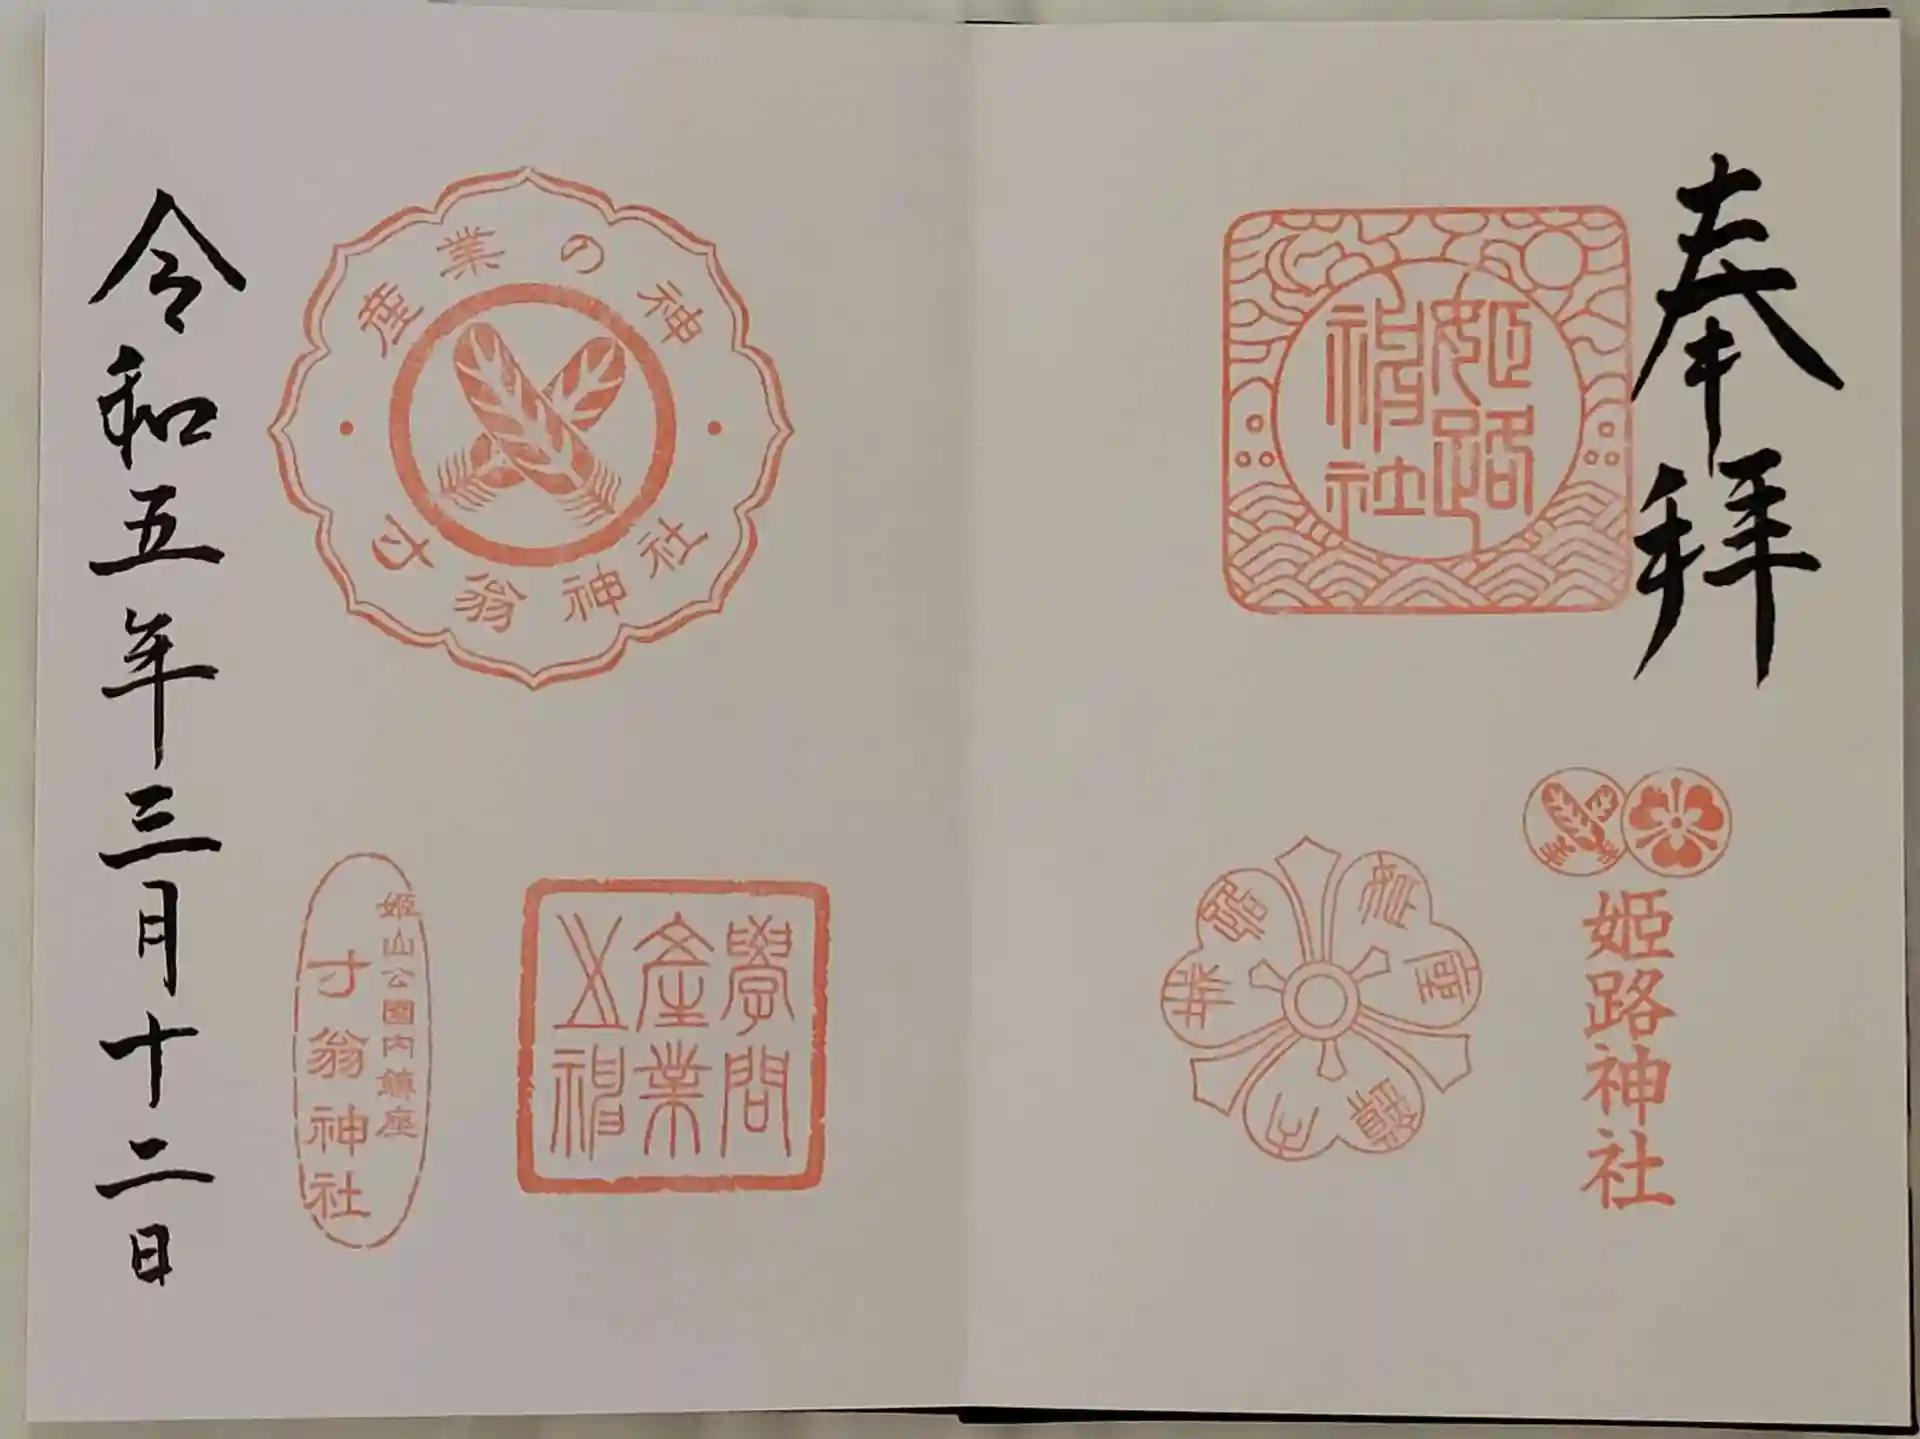 奉拝
姫路
神社
姫路神社
産業の神
寸翁神社
學問
産業
之神
姫山公園内鎮座
寸翁神社
令和五年三月十二日